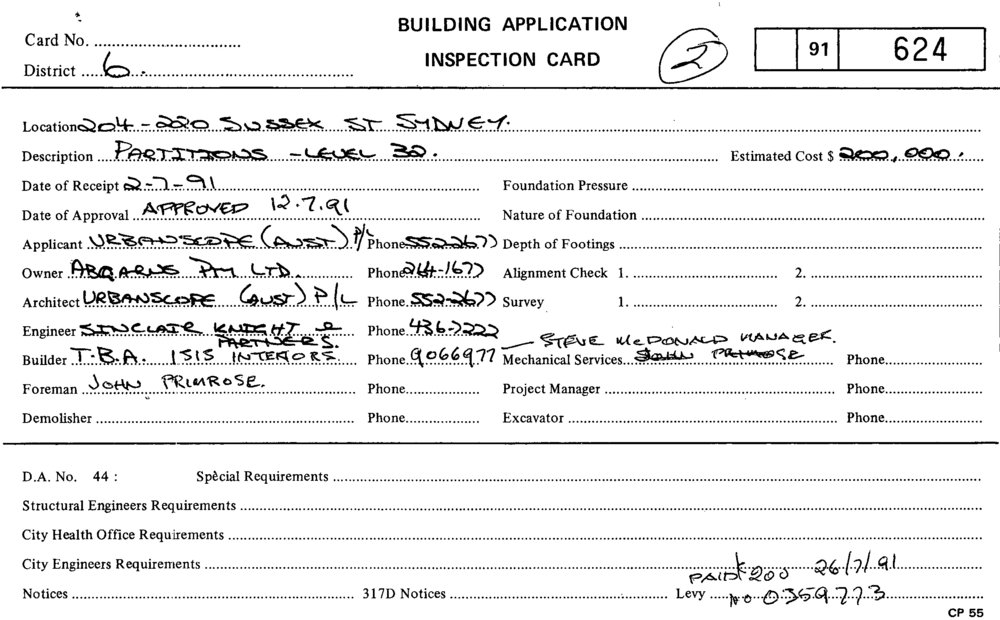 BUILDING APPLICATION
Card No.
INSPECTION CARD 2 91 624
District 6.
Location 204 - 220 SUSSEX ST SYDNEY.
Description PARTITIONS - LEVEL 32. Estimated Cost $ 200,000.
Date of Receipt 2-7-91 Foundation Pressure
Date of Approval APPROVED 12.7.91 Nature of Foundation
Applicant URBANSCOPE (AUST) P/L Phone 5522677 Depth of Footings
Owner PTY LTD. Phone 264-1677 Alignment Check 1. 2.
Architect URBANSCOPE (AUST) P/L Phone 552-2677 Survey 1. 2.
Engineer SINCLAIR KNIGHT & Phone 436-7222
PARTNERS. — STEVE McDONALD MANAGER.
Builder T.B.A. ISIS INTERIORS. Phone 9066977 Mechanical Services JOHN PRIMROSE Phone
Foreman JOHN PRIMROSE. Phone Project Manager Phone
Demolisher Phone Excavator Phone
D.A. No. 44 : Special Requirements
Structural Engineers Requirements
City Health Office Requirements
City Engineers Requirements
PAID 200 26/7/91
Notices 317D Notices Levy No 0359773
CP 55